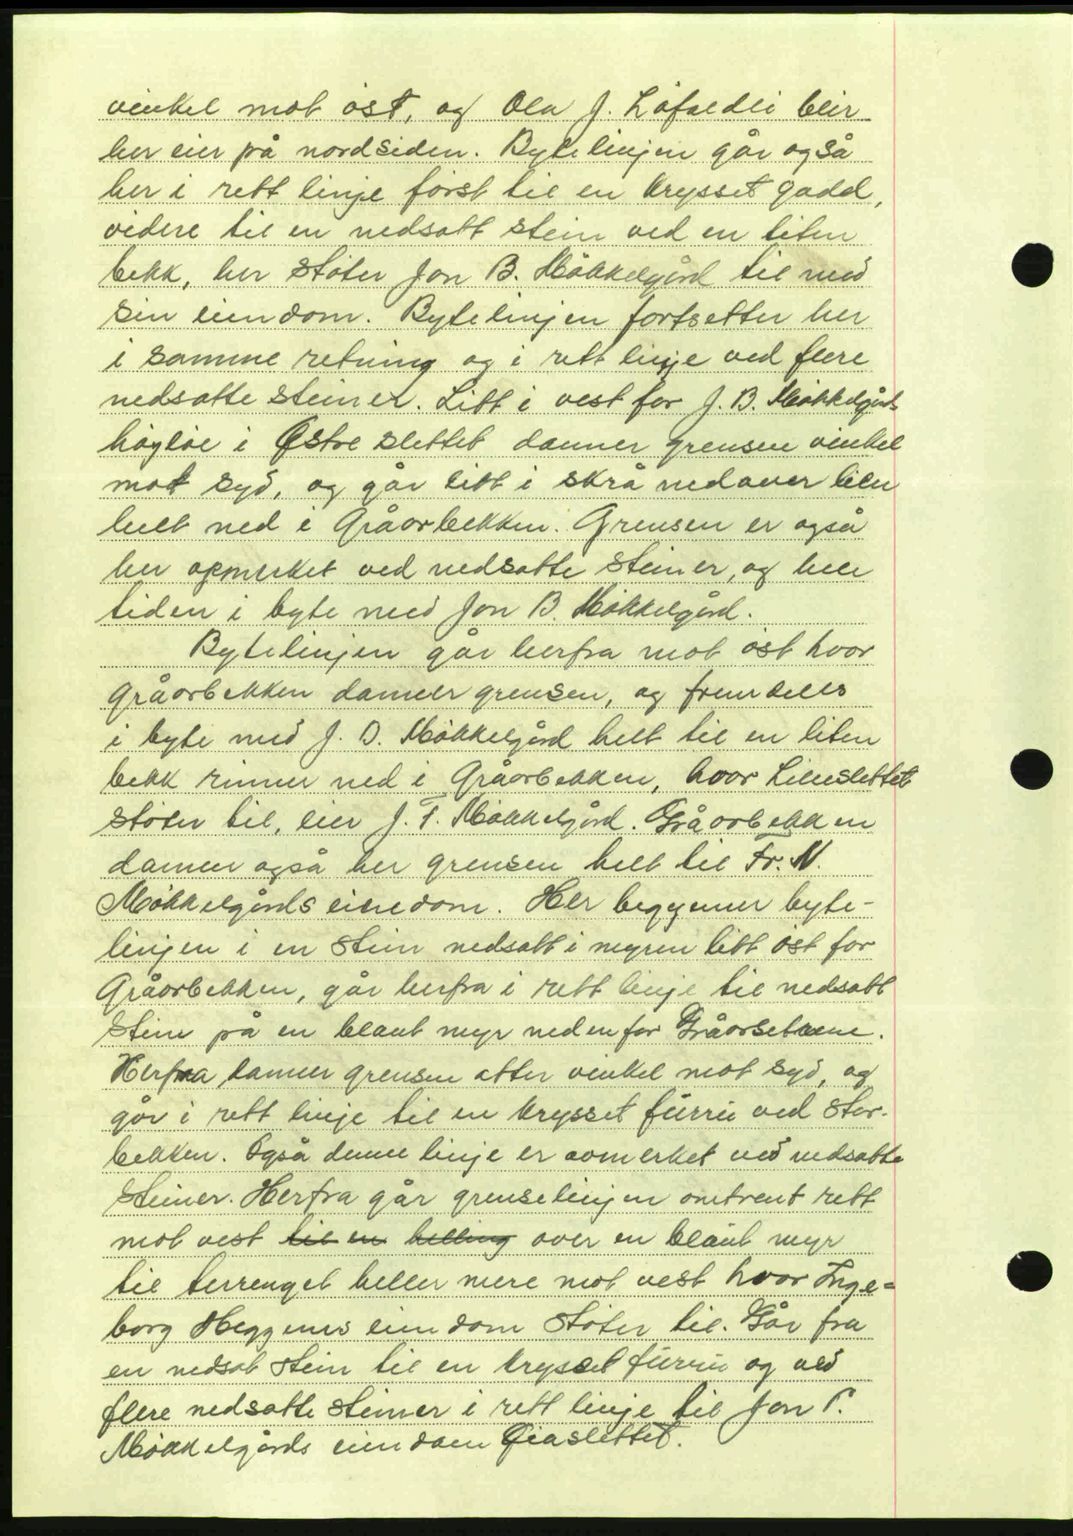 vinkel mot øst, og Ola J. Løfaldli blir
her eier på nordsiden. Bytelinjen går også
her i rett linje først til en krysset gadd,
videre til en nedsatt stein ved en liten
bekk, her støter Jon B. Møkkelgård til med
sin eiendom. Bytelinjen fortsetter her
i samme retning og i rett linje ved flere
nedsatte steiner. Litt i vest for J. B. Møkkelgårds
høyløe i Østre slettet danner grensen vinkel
mot syd, og går litt i skrå nedover lien
helt ned i Gråorbekken. Grensen er også
her opmerket ved nedsatte steiner, og hele
tiden i byte med Jon B. Møkkelgård.
Bytelinjen går herfra mot øst hvor
Gråorbekken danner grensen, og fremdeles
i byte med J. B. Møkkelgård helt til en liten
bekk rinner ned i Gråorbekken, hvor Lilleslettet
støter til, eier J. F. Møkkelgård. Gråorbekken
danner også her grensen helt til Fr. N.
Møkkelgårds eiendom. Her begynner byte-
linjen i en stein nedsatt i myren litt øst for
Gråorbekken, går herfra i rett linje til nedsatt
stein på en blaut myr nedenfor Gråorsetrene.
Herfra danner grensen atter vinkel mot syd, og
går i rett linje til en krysset furru ved Stor-
bekken. Også denne linje er avmerket ved nedsatte
steiner. Herfra går grenselinjen omtrent rett
mot vest til en helling over en blaut myr
til terrenget heller mere mot vest hvor Inge=
borg Heggems eiendom støter til. Går fra
en nedsat stein til en krysset furru og ved
flere nedsatte steiner i rett linje til Jon P.
Møkkelgårds eiendom Øiaslettet.